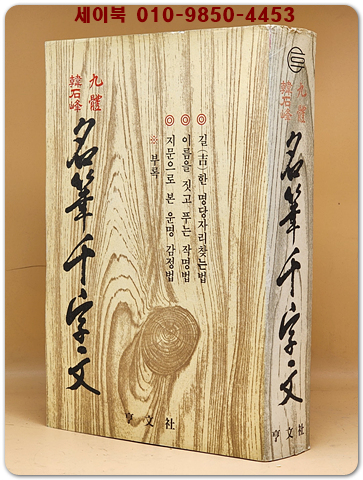 세이북 010-9850-4453
九體
韓石峰
名筆千字文
◎ 길(吉)한 명당자리찾는법
◎ 이름을 짓고 푸는 작명법
◎ 지문으로 본 운명 감정법
※ 부록
亨文社
九體
韓石峰
名筆千字文
亨文社